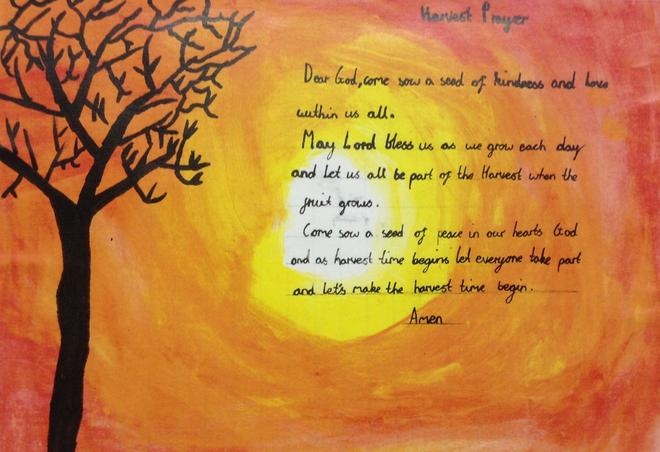 Harvest Prayer
Dear God, come sow a seed of kindness and love
within us all.
May Lord bless us as we grow each day
and let us all be part of the Harvest when the
fruit grows.
Come sow a seed of peace in our hearts God
and as harvest time begins let everyone take part
and let's make the harvest time begin.
Amen